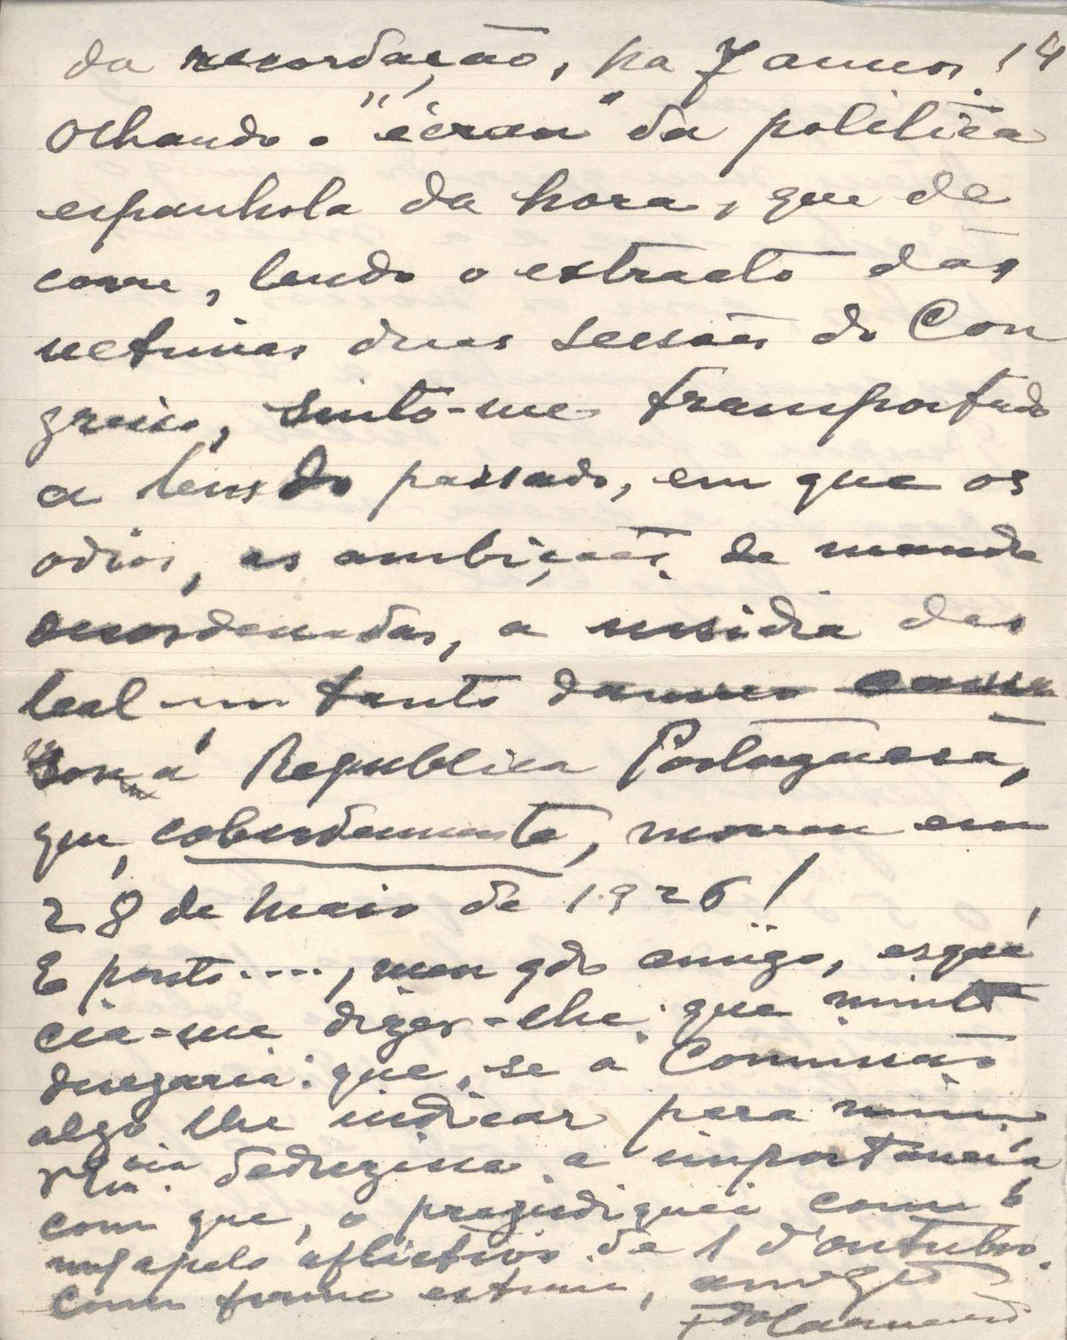 da recordação, ha 7 annos! 14
Olhando o "écran" da politica
espanhola da hora, que de
corre, lendo o extracto das
ultimas duas sessões do Con
gresso, sinto-me transportado
a tempo passado, em que os
odios, as ambições de mando
desordenadas, a insidia des
leal um tanto
á Republica Portuguesa,
que, cobardemente, morreu em
28 de Maio de 1926!
E ponto...., meu qdo amigo, esque
cia-me dizer-lhe: que minto
que, se a Commissão
algo lhe indicar para mim
V. Exa. deduzisse a importancia
com que, o prejudiquei com o
mf apelo aflictivo de 1 d'outubro.
Com firme estima, amgo